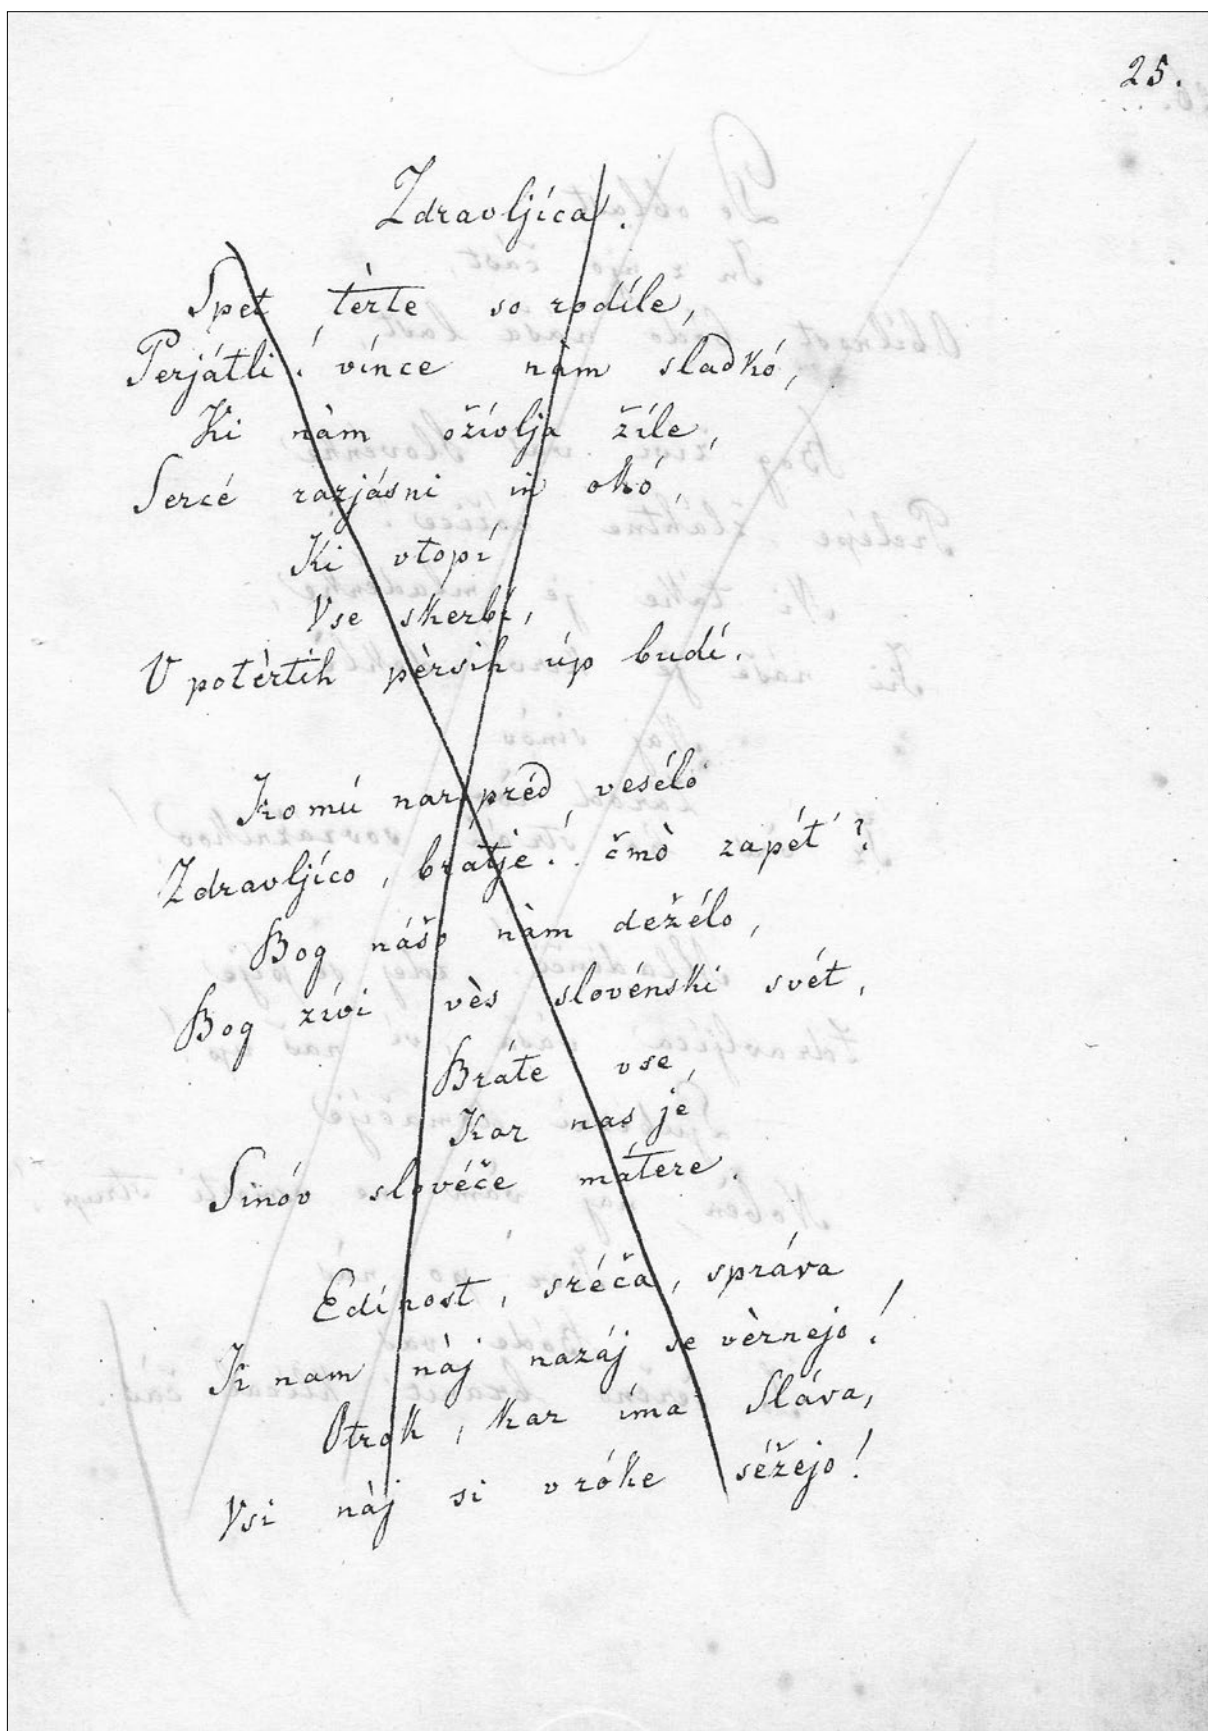 25.
Zdravljíca.
Spet tèrte so rodíle,
Perjátli! vínce nàm sladkó,
Ki nàm ožívlja žíle,
Sercé razjásni in okó,
Ki vtopí
Vse skerbí,
V potèrtih pèrsih úp budí.
Komú narpréd veseló
Zdravljíco, brátje! čmò zapét'?
Bog nášo nàm deželo,
Bog zívi vès slovénski svét,
Bráte vse,
Kar nas je
Sinóv slovéče mátere.
Edínost, sréča, správa
K nam nàj nazáj se vèrnejo!
Otrok, kar íma Sláva,
Vsi nàj si v róke séžejo!